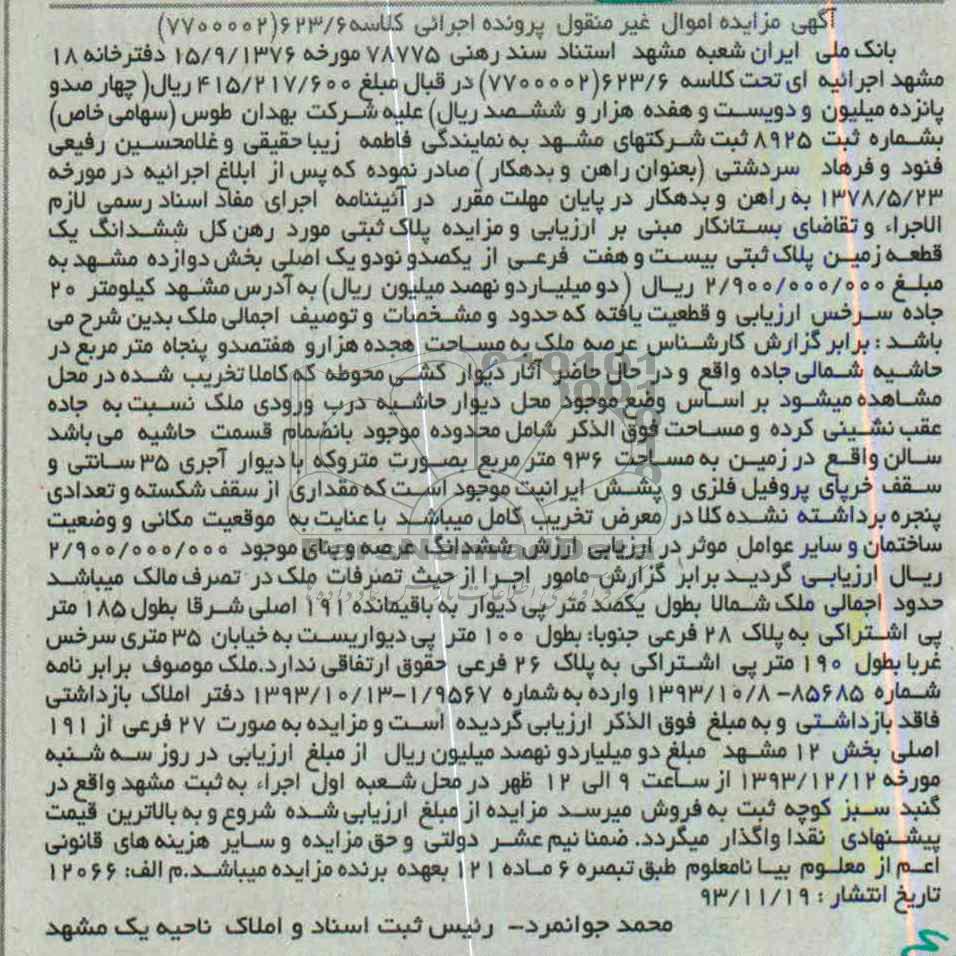 آگهی مزایده اموال غیر منقول پرونده اجرائی کلاسه۶۲۳/۶(۷۷۰۰۰۰۲)
بانک ملی ایران شعبه مشهد استناد سند رهنی ۷۸۷۷۵ مورخه ۱۵/۹/۱۳۷۶ دفترخانه ۱۸
مشهد اجرائیه ای تحت کلاسه ۶۲۳/۶(۷۷۰۰۰۰۲) در قبال مبلغ ۴۱۵/۲۱۷/۶۰۰ ریال( چهار صدو
پانزده میلیون و دویست و هفده هزار و ششصد ریال) علیه شرکت بهدان طوس (سهامی خاص)
بشماره ثبت ۸۹۲۵ ثبت شرکتهای مشهد به نمایندگی فاطمه زیبا حقیقی و غلامحسین رفیعی
فنود و فرهاد سردشتی (بعنوان راهن و بدهکار ) صادر نموده که پس از ابلاغ اجرائیه در مورخه
۱۳۷۸/۵/۲۳ به راهن و بدهکار در پایان مهلت مقرر در آئیننامه اجرای مفاد اسناد رسمی لازم
الاجراء و تقاضای بستانکار مبنی بر ارزیابی و مزایده پلاک ثبتی مورد رهن کل ششدانگ یک
قطعه زمین پلاک ثبتی بیست و هفت فرعی از یکصدو نودو یک اصلی بخش دوازده مشهد به
مبلغ ۲/۹۰۰/۰۰۰/۰۰۰ ریال (دو میلیاردو نهصد میلیون ریال) به آدرس مشهد کیلومتر ۲۰
جاده سرخس ارزیابی و قطعیت یافته که حدود و مشخصات و توصیف اجمالی ملک بدین شرح می
باشد : برابر گزارش کارشناس عرصه ملک به مساحت هجده هزارو هفتصدو پنجاه متر مربع در
حاشیه شمالی جاده واقع و در حال حاضر آثار دیوار کشی محوطه که کاملا تخریب شده در محل
مشاهده میشود بر اساس وضع موجود محل دیوار حاشیه درب ورودی ملک نسبت به جاده
عقب نشینی کرده و مساحت فوق الذکر شامل محدوده موجود بانضمام قسمت حاشیه می باشد
سالن واقع در زمین به مساحت ۹۳۶ متر مربع بصورت متروکه با دیوار آجری ۳۵ سانتی و
سقف خرپای پروفیل فلزی و پشش ایرانیت موجود است که مقداری از سقف شکسته و تعدادی
پنجره برداشته نشده کلا در معرض تخریب کامل میباشد با عنایت به موقعیت مکانی و وضعیت
ساختمان و سایر عوامل موثر در ارزیابی ارزش ششدانگ عرصه و بنای موجود ۲/۹۰۰/۰۰۰/۰۰۰
ریال ارزیابی گردید برابر گزارش مامور اجرا از حیث تصرفات ملک در تصرف مالک میباشد
حدود اجمالی ملک شمالا بطول یکصد متر پی دیوار به باقیمانده ۱۹۱ اصلی شرقا بطول ۱۸۵ متر
پی اشتراکی به پلاک ۲۸ فرعی جنوبا: بطول ۱۰۰ متر پی دیواریست به خیابان ۳۵ متری سرخس
غربا بطول ۱۹۰ متر پی اشتراکی به پلاک ۲۶ فرعی حقوق ارتفاقی ندارد.ملک موصوف برابر نامه
شماره ۸۵۶۸۵-۱۳۹۳/۱۰/۸ وارده به شماره ۱/۹۵۶۷-۱۳۹۳/۱۰/۱۳ دفتر املاک بازداشتی
فاقد بازداشتی و به مبلغ فوق الذکر ارزیابی گردیده است و مزایده به صورت ۲۷ فرعی از ۱۹۱
اصلی بخش ۱۲ مشهد مبلغ دو میلیاردو نهصد میلیون ریال از مبلغ ارزیابی در روز سه شنبه
مورخه ۱۳۹۳/۱۲/۱۲ از ساعت ۹ الی ۱۲ ظهر در محل شعبه اول اجراء به ثبت مشهد واقع در
گنبد سبز کوچه ثبت به فروش میرسد مزایده از مبلغ ارزیابی شده شروع و به بالاترین قیمت
پیشنهادی نقدا واگذار میگردد. ضمنا نیم عشر دولتی و حق مزایده و سایر هزینه های قانونی
اعم از معلوم بیا نامعلوم طبق تبصره ۶ ماده ۱۲۱ بعهده برنده مزایده میباشد.م الف: ۱۲۰۶۶
تاریخ انتشار : ۹۳/۱۱/۱۹
محمد جوانمرد- رئیس ثبت اسناد و املاک ناحیه یک مشهد